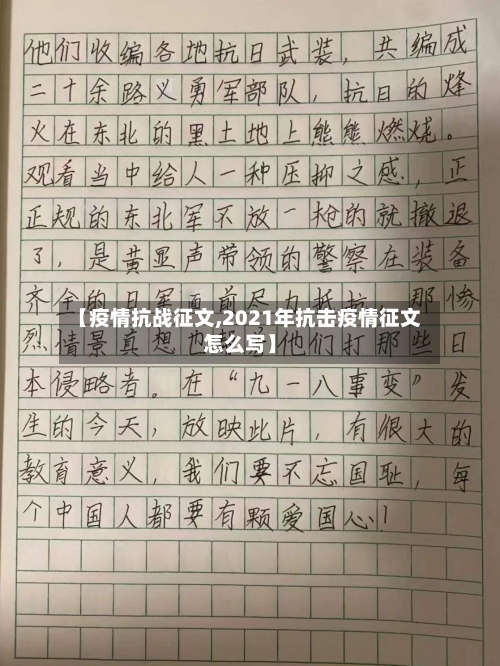 他们收编各地抗日武装，共编成
二十余路义勇军部队，抗日的烽
火在东北的黑土地上熊熊燃烧。
观看当中给人一种压抑之感，正
正规的东北军不放一枪的就撤退
了，是黄显声带领的警察在装备
齐全的日军面前尽力抵抗，那惨
【疫情抗战征文,2021年抗击疫情征文
怎么写】
烈情景真想也 他们打那些日
本侵略者。在“九一八事变”发
生的今天，放映此片，有很大的
教育意义，我们要不忘国耻，每
个中国人都要有颗爱国心！